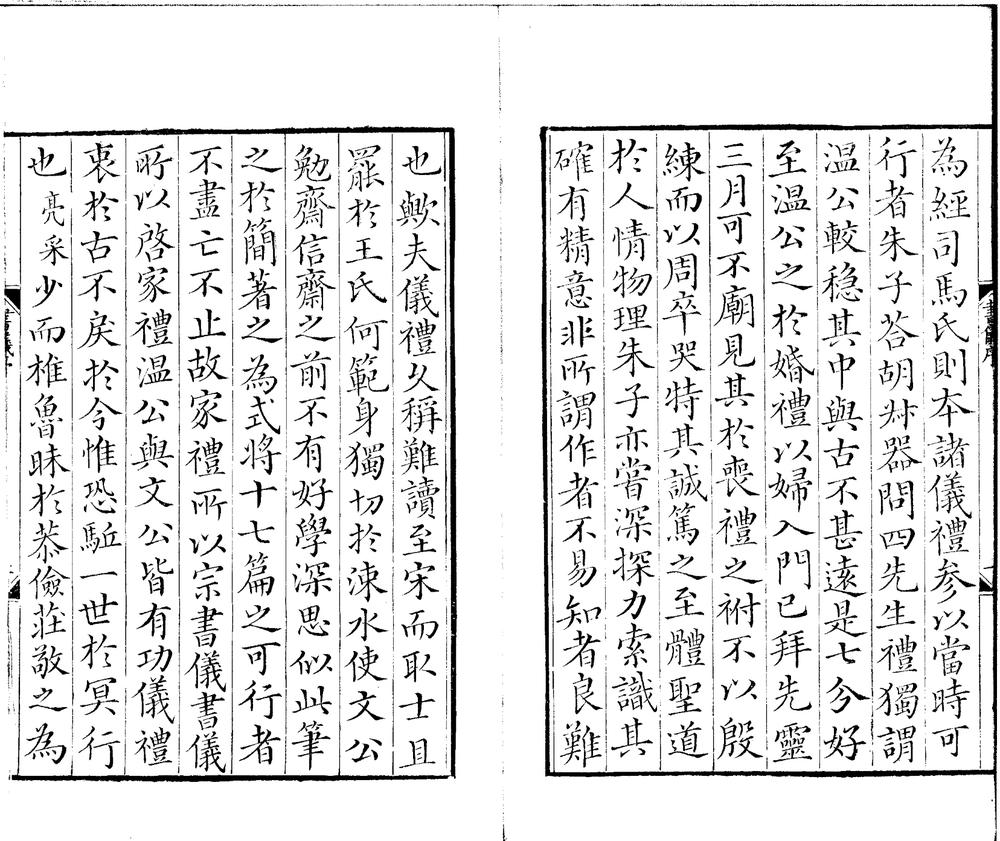 為經司馬氏則本諸儀禮参以當時可
行者朱子荅胡叔器問四先生禮獨謂
温公較稳其中與古不甚遠是七分好
至温公之於婚禮以婦入門已拜先靈
三月可不廟見其於喪禮之祔不以殷
練而以周卒哭特其誠篤之至體聖道
於人情物理朱子亦嘗深探力索識其
確有精意非所謂作者不易知者良難
也歟夫儀禮久稱難讀至宋而取士且
罷於王氏何範身獨切於涑水使文公
勉齋信齋之前不有好學深思似此筆
之於簡著之為式將十七篇之可行者
不盡亡不止故家禮所以宗書儀書儀
所以啓家禮温公與文公皆有功儀禮
衷於古不戾於今惟恐駈一世於冥行
也亮采少而椎魯昧於恭儉莊敬之為